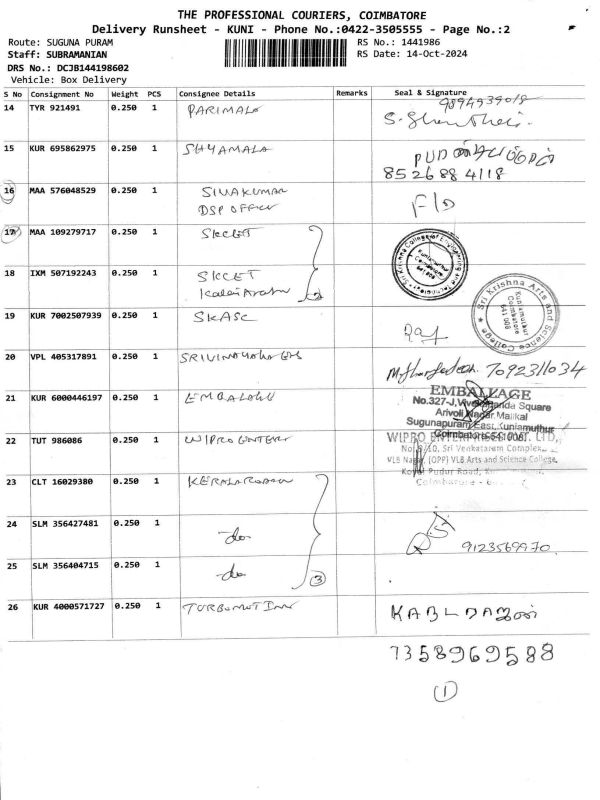 THE PROFESSIONAL COURIERS, COIMBATORE
Delivery Runsheet - KUNI - Phone No.:0422-3505555 - Page No.:2
Route: SUGUNA PURAM
RS No.: 1441986
Staff: SUBRAMANIAN
RS Date: 14-Oct-2024
DRS No.: DCJB144198602
Vehicle: Box Delivery
S No Consignment No Weight PCS Consignee Details Remarks Seal & Signature
14 TYR 921491 0.250 1 PARIMALA
15 KUR 695862975 0.250 1 SHYAMALA
8526884118
16 MAA 576048529 0.250 1 SIVAKUMAR
DSP OFFICE
17 MAA 109279717 0.250 1 SKCET
Sri Krishna College of Engineering and Technology
Kuniamuthur
Coimbatore
641 008
18 IXM 507192243 0.250 1 SKCET
2
Sri Krishna Arts and Science College
Kuniamuthur
Coimbatore
641 008
19 KUR 7002507939 0.250 1 SKASC
20 VPL 405317891 0.250 1
7092311034
21 KUR 6000446197 0.250 1
EMBALLAGE
No.327-J, Vivekananda Square
Arivoli Nagar, Malikal
Sugunapuram East, Kuniamuthur
Coimbatore-641 008.
22 TUT 986086 0.250 1 WIPRO
WIPRO ENTERPRISES PVT. LTD.,
Sri Venkataram Complex,
VLB Nagar, (OPP) VLB Arts and Science College,
Pudur Road,
Coimbatore -
23 CLT 16029380 0.250 1
24 SLM 356427481 0.250 1 -do-
9123569970
25 SLM 356404715 0.250 1 -do
3
26 KUR 4000571727 0.250 1
7358969588
1